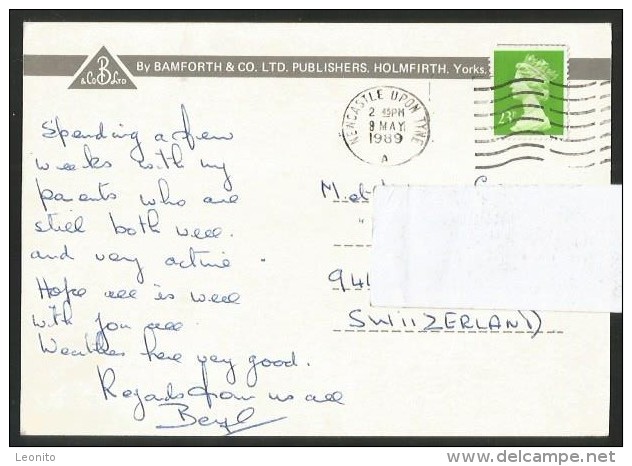 B
& Co LTD
By BAMFORTH & CO. LTD. PUBLISHERS. HOLMFIRTH, Yorks.
NEWCASTLE UPON TYNE
2 45PM
9 MAY
1989
A
Spending a few
weeks with my
parents who are
still both well.
and very active.
Hope all is well
with you all
Weather here very good.
Regards from us all
Beryl
M.et
944
SWIIZERLAND
Leonito
www.delcampe.net